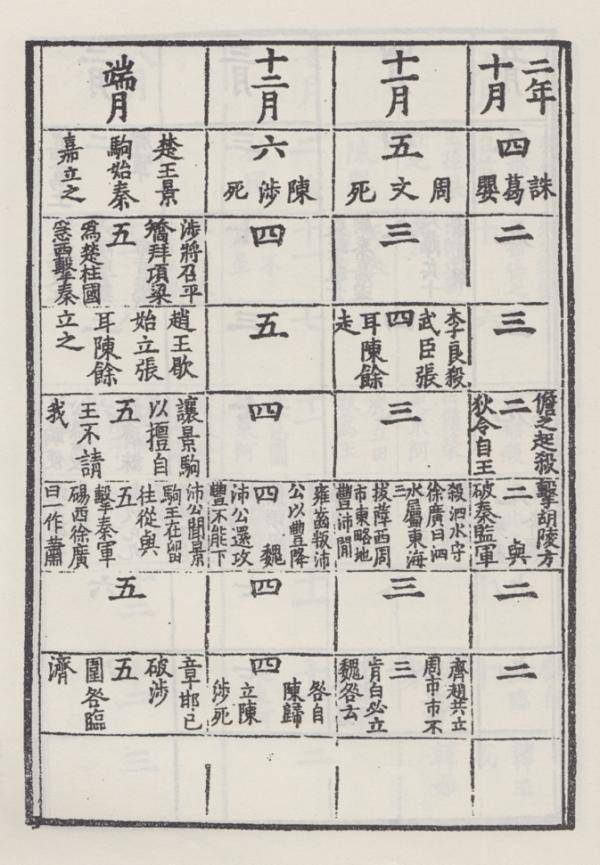 二年
十月
十一月
十二月
端月
四
誅葛嬰
五
周文死
六
陳涉死
楚王景
駒始秦
嘉立之
二
三
四
涉將召平
矯拜項梁
五
爲楚柱國
急西擊秦
三
李良殺
武臣張
四
耳陳餘
走
五
趙王歇
始立張
耳陳餘
立之
儋之起殺
二
狄令自王
三
四
讓景駒
以擅自
五
王不請
我
擊胡陵方
二與
破秦監軍
殺泗水守
徐廣曰泗
水屬東海
三
拔薛西周
市東略地
豐沛間
雍齒叛沛
公以豐降
四魏
沛公還攻
豐不能下
沛公聞景
駒王在留
往從與
五
擊秦軍
碭西徐廣
曰一作蕭
二
三
四
五
二
齊趙共立
周市市不
三
肯曰必立
魏咎云
咎自
陳歸
四
立陳
涉死
章邯已
破涉
五
圍咎臨
濟